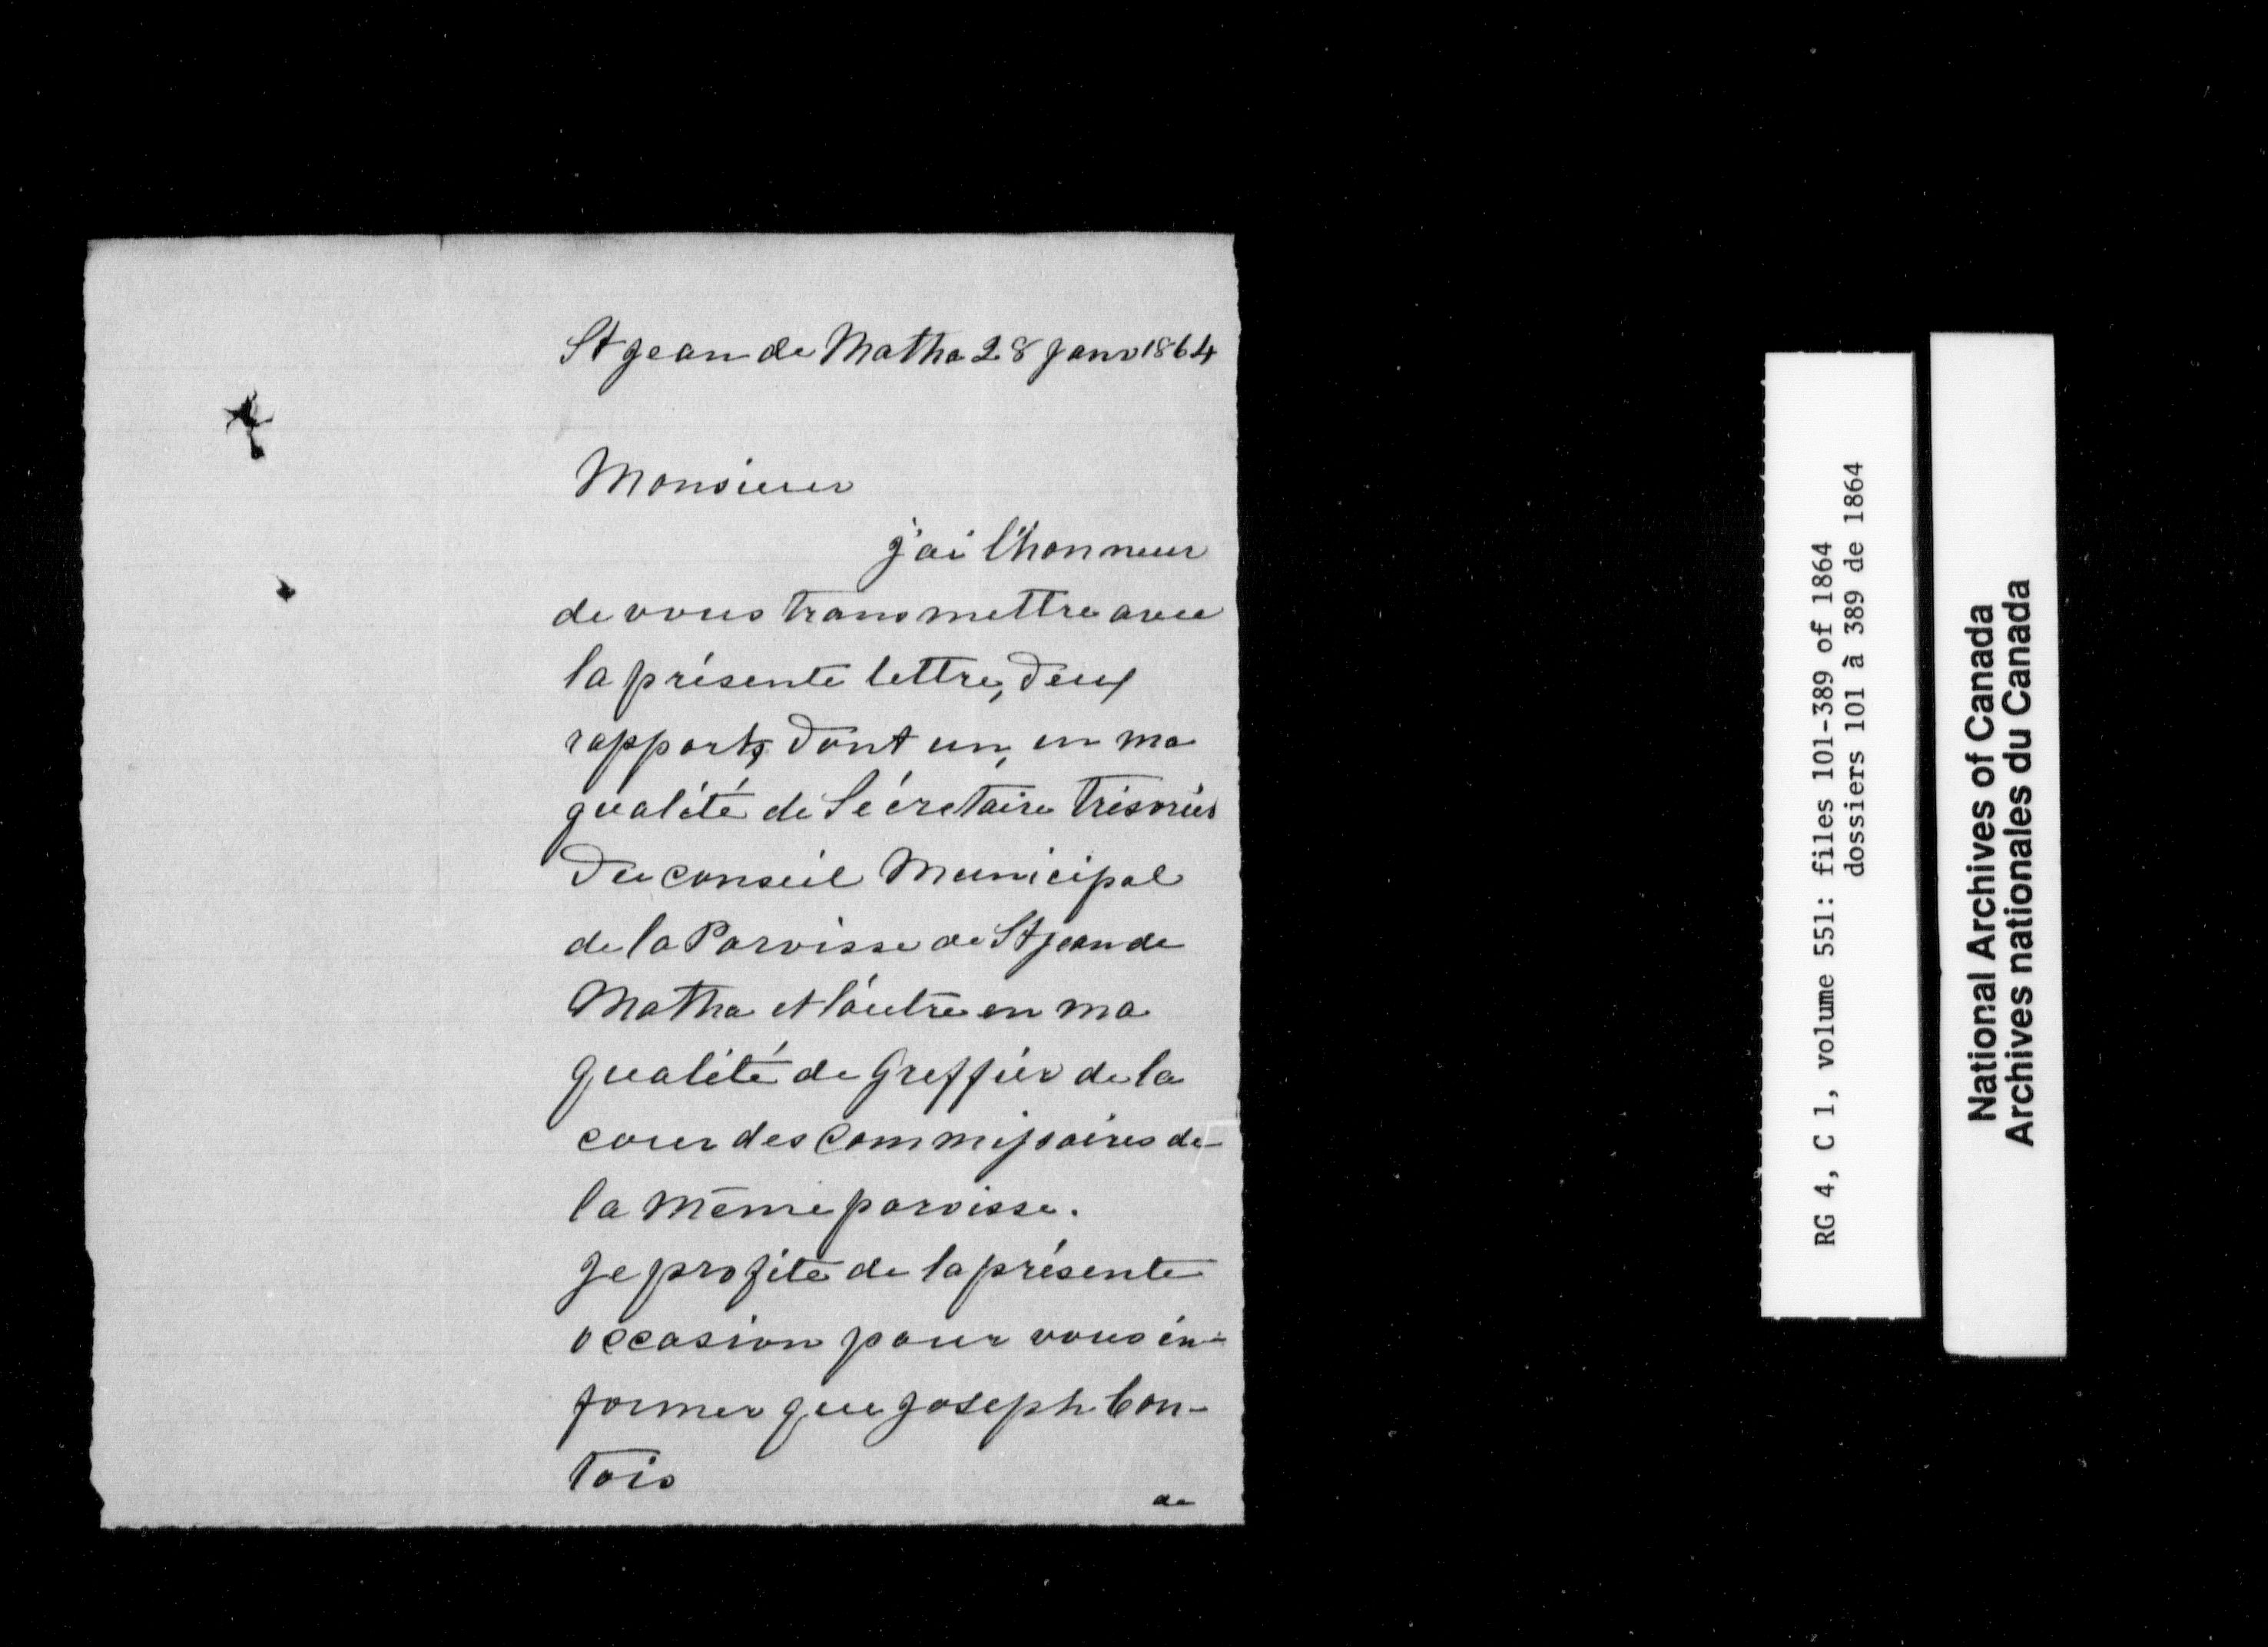 St Jean de Matha 28 Janv 1864
Monsieur
j'ai l'honneur
de vous transmettre avec
la présente lettre, deux
rapports, dont un, en ma
qualité de Sécretaire Trésorier
du conseil Municipal
de la Paroisse de St Jean de
Matha et l'autre en ma
qualité de Greffier de la
cour des Commissaires de
la même paroisse.
Je profite de la présente
occasion pour vous in-
former que Joseph Con-
tois
de
RG 4, C 1, volume 551: files 101-389 of 1864
dossiers 101 à 389 de 1864
National Archives of Canada
Archives nationales du Canada